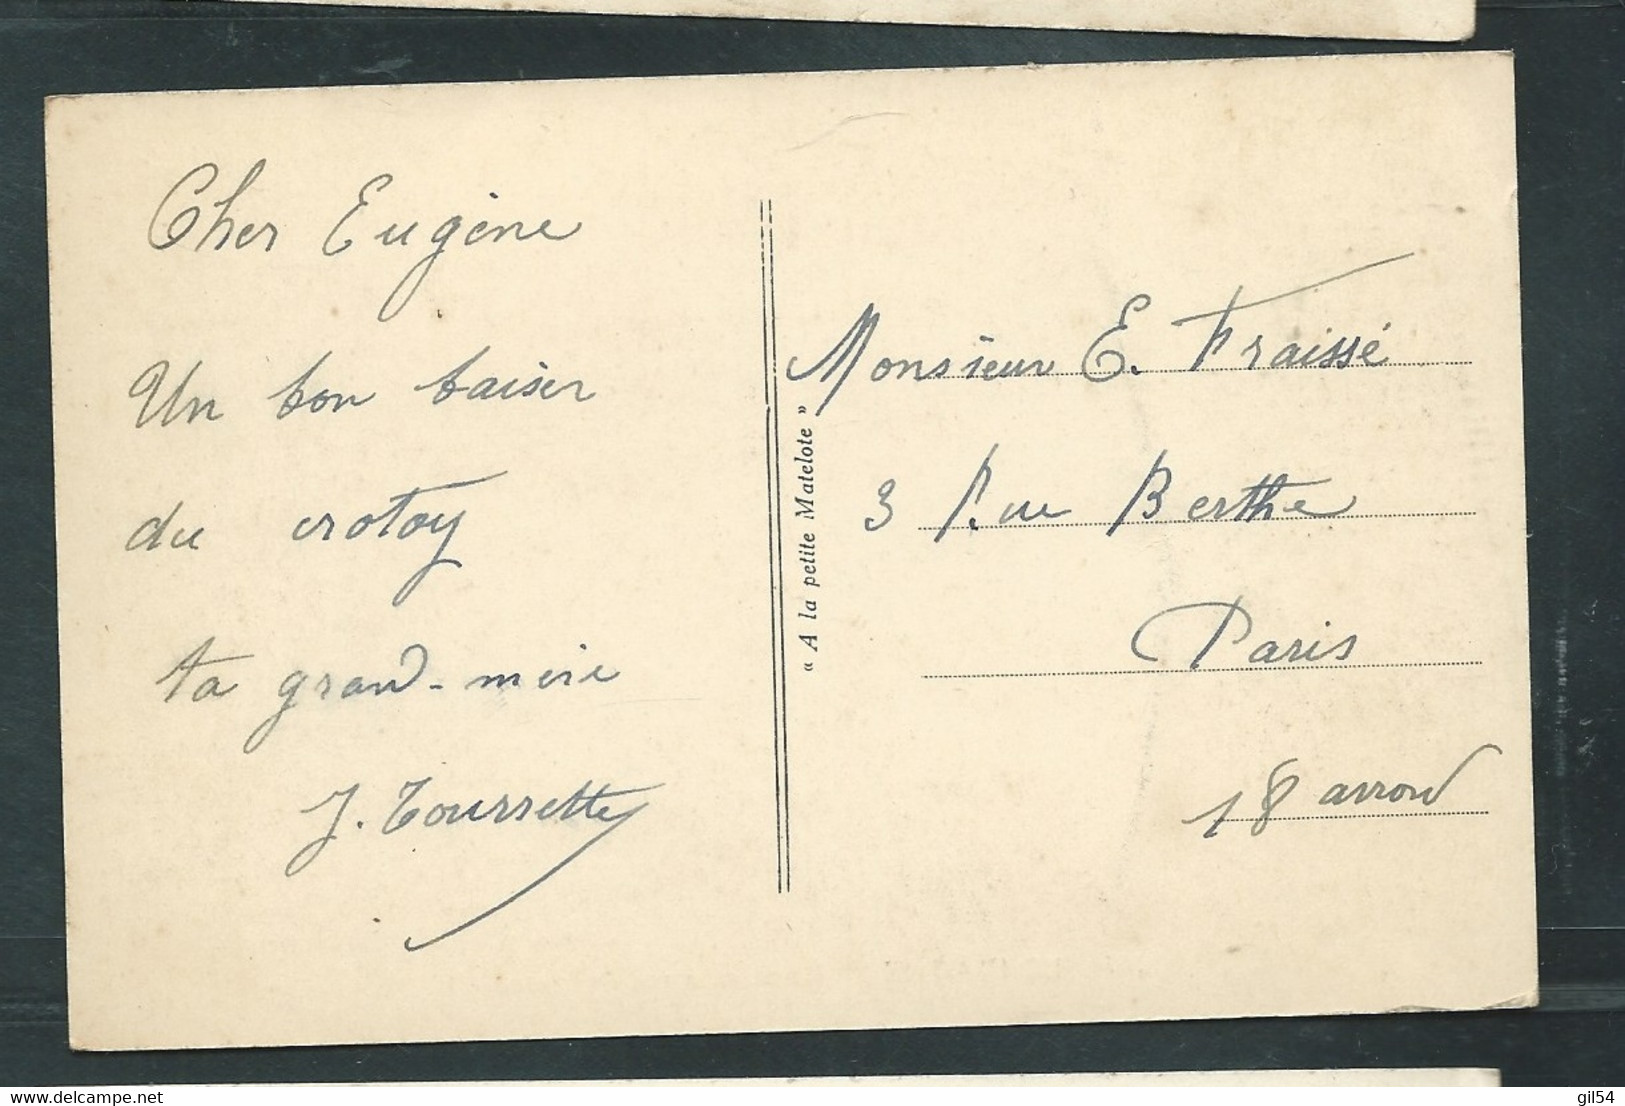 Cher Eugène
Un bon baiser
du crotoy
ta grand-mère
J. Toursette
" A la petite Matelote "
Monsieur E. Fraissé
3 Rue Berthe
Paris
18 arrond
gil54